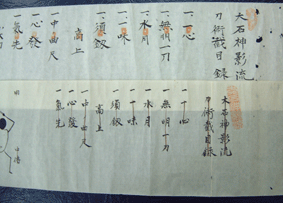 大石神影流
刀術截目録
一一心
一無明一刀
一水月
一一味
一須釼
高上
一中曲尺
一心發
一氣先
大石神影流
刀術截目録
一一心
一無明一刀
一水月
一一味
一須釼
高上
一中曲尺
一心發
一氣先